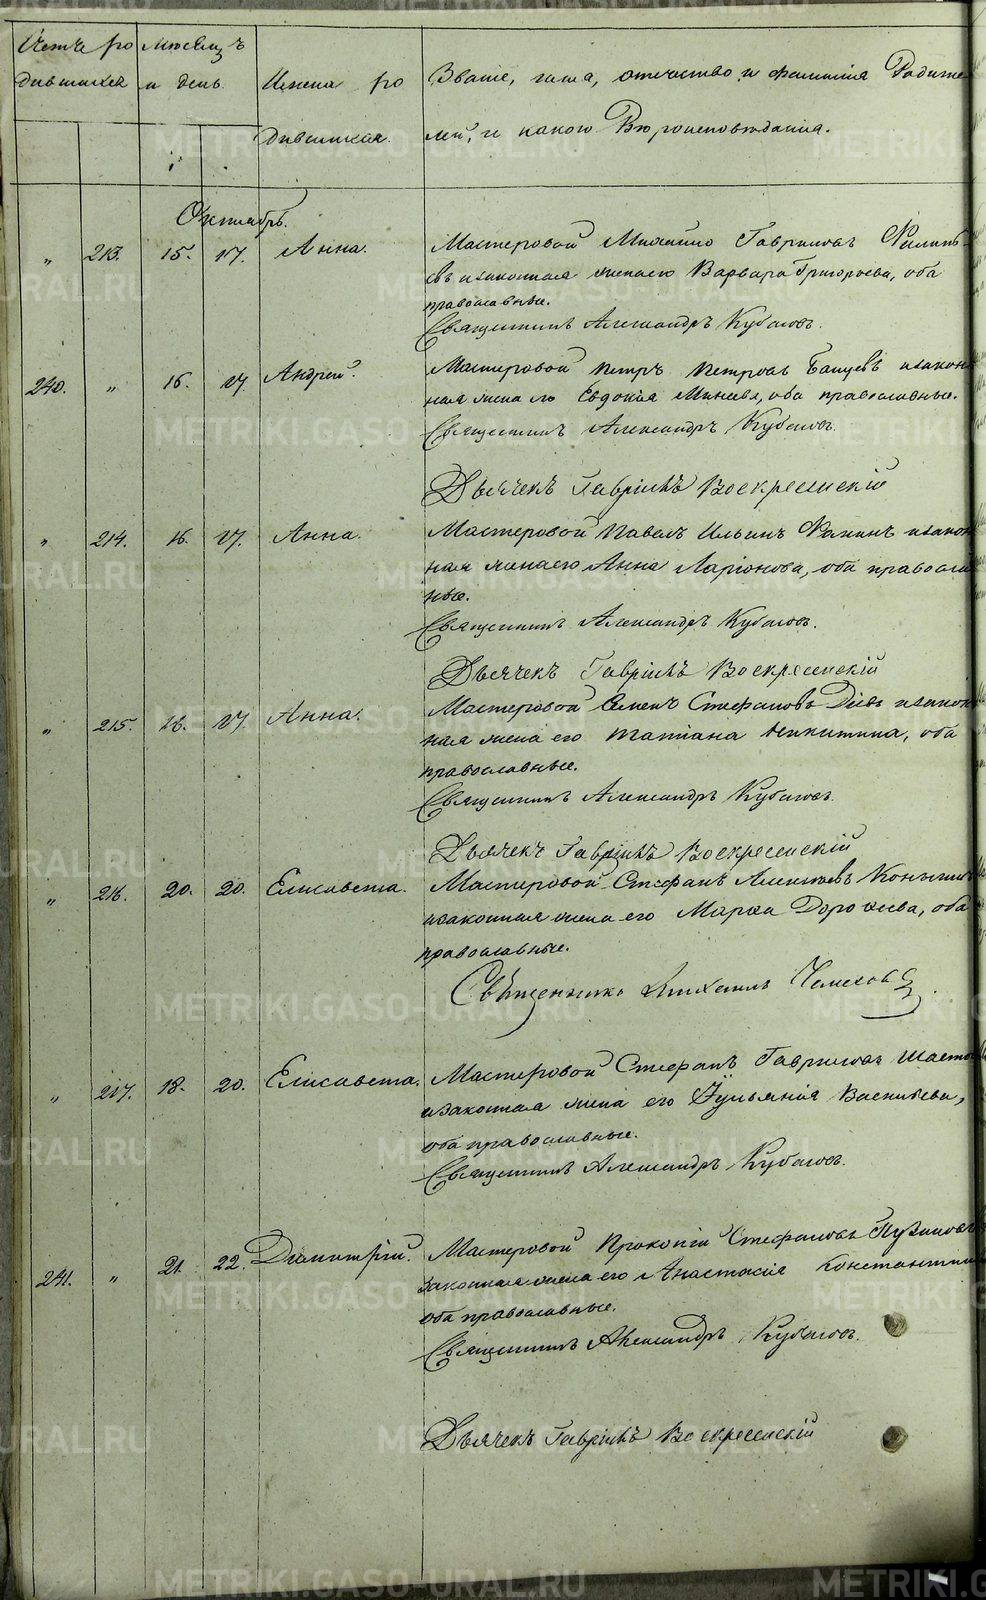 Счетъ ро мѣсяцъ
дившихся и день. Имена ро Званіе, имя, отчество, и фамилія Родите
дившихся. лей, и какого Вѣроисповѣданія.
Октябрь.
" 213. 15. 17. Анна. Мастеровой Михайло Гавриловъ
въ и законная жена его Варвара Григорьева, оба
православные.
Священникъ Александръ Кубасовъ.
240. " 16. 17 Андрей. Мастеровой Петръ Петровъ и закон
ная жена его Евдокія Минѣева, оба православные.
Священникъ Александръ Кубасовъ.
Дьячекъ Гавріилъ Воскресенскій
" 214. 16. 17. Анна. Мастеровой Павелъ Ильинъ и закон
ная жена его Анна Ларіонова, оба православ
ные.
Священникъ Александръ Кубасовъ.
Дьячекъ Гавріилъ Воскресенскій
" 215. 16. 17. Анна. Мастеровой Семенъ Стефановъ и закон
ная жена его Татіана Никитина, оба
православные.
Священникъ Александръ Кубасовъ.
Дьячекъ Гавріилъ Воскресенскій
" 216. 20. 20. Елисавета. Мастеровой Стефанъ Алексѣевъ
и законная жена его Марѳа Дороѳеева, оба
православные.
Священникъ Михаилъ
" 217. 18. 20. Елисавета. Мастеровой Стефанъ Гавриловъ
и законная жена его Іульянія Васильева,
оба православные.
Священникъ Александръ Кубасовъ.
241. " 21. 22. Димитрій. Мастеровой Прокопій Стефановъ
законная жена его Анастасія Константинова
оба православные.
Священникъ Александръ Кубасовъ.
Дьячекъ Гавріилъ Воскресенскій
METRIKI.GASO-URAL.RU